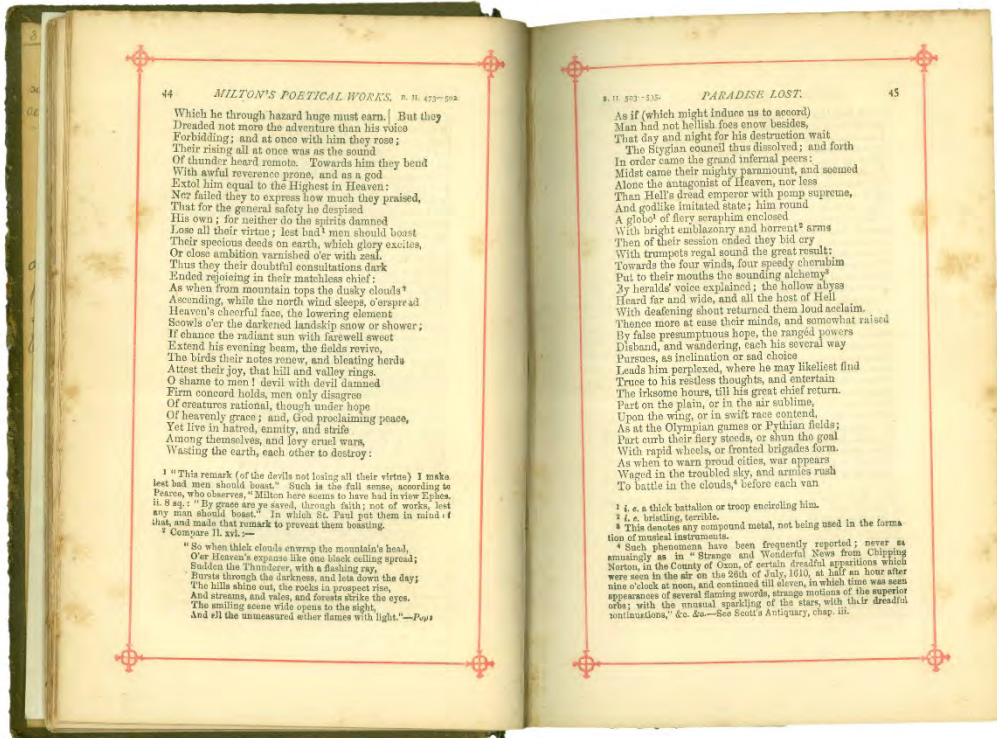 44 MILTON'S POETICAL WORKS. B. II. 473—502.
Which he through hazard huge must earn. But they
Dreaded not more the adventure than his voice
Forbidding; and at once with him they rose;
Their rising all at once was as the sound
Of thunder heard remote. Towards him they bend
With awful reverence prone, and as a god
Extol him equal to the Highest in Heaven:
Nor failed they to express how much they praised,
That for the general safety he despised
His own; for neither do the spirits damned
Lose all their virtue; lest bad¹ men should boast
Their specious deeds on earth, which glory excites,
Or close ambition varnished o'er with zeal.
Thus they their doubtful consultations dark
Ended rejoicing in their matchless chief:
As when from mountain tops the dusky clouds²
Ascending, while the north wind sleeps, o'erspread
Heaven's cheerful face, the lowering element
Scowls o'er the darkened landskip snow or shower;
If chance the radiant sun with farewell sweet
Extend his evening beam, the fields revive,
The birds their notes renew, and bleating herds
Attest their joy, that hill and valley rings.
O shame to men! devil with devil damned
Firm concord holds, men only disagree
Of creatures rational, though under hope
Of heavenly grace; and, God proclaiming peace,
Yet live in hatred, enmity, and strife
Among themselves, and levy cruel wars,
Wasting the earth, each other to destroy:
¹ "This remark (of the devils not losing all their virtue) I make
lest bad men should boast." Such is the full sense, according to
Pearce, who observes, "Milton here seems to have had in view Ephes.
ii. 8 sq.: "By grace are ye saved, through faith; not of works, lest
any man should boast." In which St. Paul put them in mind of
that, and made that remark to prevent them boasting.
² Compare Il. xvi.:—
"So when thick clouds enwrap the mountain's head,
O'er Heaven's expanse like one black ceiling spread;
Sudden the Thunderer, with a flashing ray,
Bursts through the darkness, and lets down the day;
The hills shine out, the rocks in prospect rise,
And streams, and vales, and forests strike the eyes.
The smiling scene wide opens to the sight,
And all the unmeasured æther flames with light."—Pope
B. II. 503—535. PARADISE LOST. 45
As if (which might induce us to accord)
Man had not hellish foes enow besides,
That day and night for his destruction wait
The Stygian council thus dissolved; and forth
In order came the grand infernal peers:
Midst came their mighty paramount, and seemed
Alone the antagonist of Heaven, nor less
Than Hell's dread emperor with pomp supreme,
And godlike imitated state; him round
A globe¹ of fiery seraphim enclosed
With bright emblazonry and horrent² arms
Then of their session ended they bid cry
With trumpets regal sound the great result:
Towards the four winds, four speedy cherubim
Put to their mouths the sounding alchemy³
By heralds' voice explained; the hollow abyss
Heard far and wide, and all the host of Hell
With deafening shout returned them loud acclaim.
Thence more at ease their minds, and somewhat raised
By false presumptuous hope, the rangéd powers
Disband, and wandering, each his several way
Pursues, as inclination or sad choice
Leads him perplexed, where he may likeliest find
Truce to his restless thoughts, and entertain
The irksome hours, till his great chief return.
Part on the plain, or in the air sublime,
Upon the wing, or in swift race contend,
As at the Olympian games or Pythian fields;
Part curb their fiery steeds, or shun the goal
With rapid wheels, or fronted brigades form.
As when to warn proud cities, war appears
Waged in the troubled sky, and armies rush
To battle in the clouds,⁴ before each van
¹ i. e. a thick battalion or troop encircling him.
² i. e. bristling, terrible.
³ This denotes any compound metal, not being used in the forma
tion of musical instruments.
⁴ Such phenomena have been frequently reported; never so
amusingly as in "Strange and Wonderful News from Chipping
Norton, in the County of Oxon, of certain dreadful apparitions which
were seen in the air on the 26th of July, 1610, at half an hour after
nine o'clock at noon, and continued till eleven, in which time was seen
appearances of several flaming swords, strange motions of the superior
orbs; with the unusual sparkling of the stars, with their dreadful
continuations," &c. &c.—See Scott's Antiquary, chap. iii.